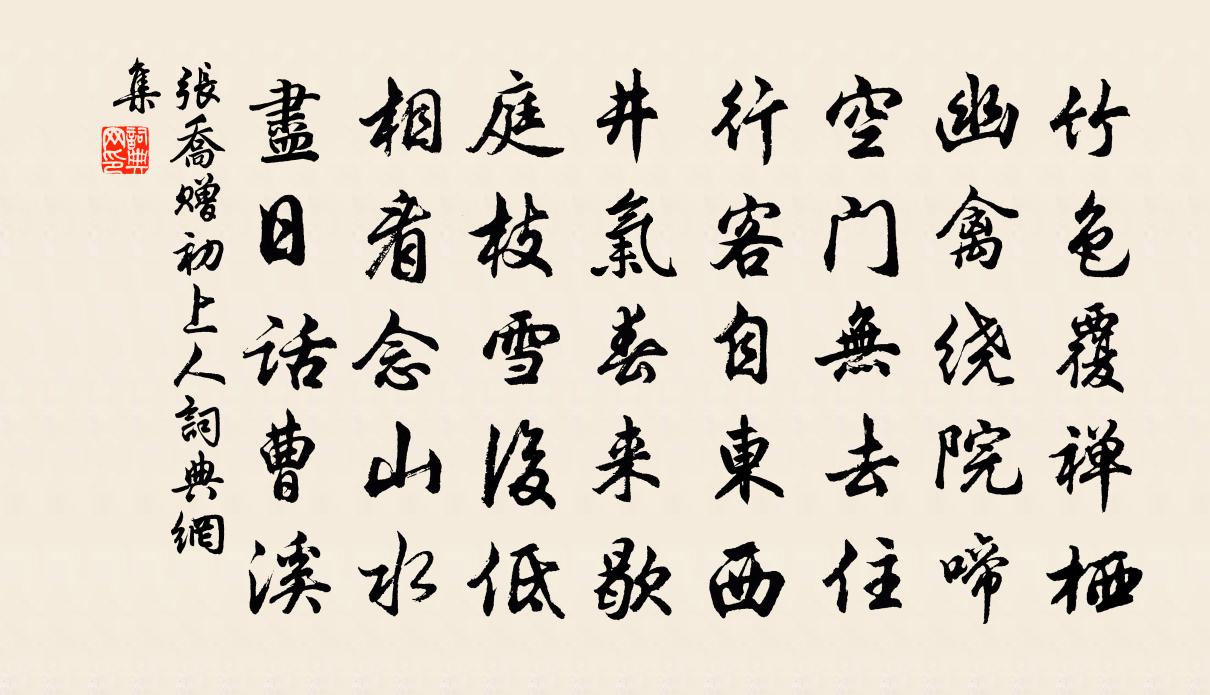 竹色覆禅栖
幽禽绕院啼
空门無去住
行客自東西
井氣春来歇
庭枝雪後低
相看念山水
盡日話曹溪
張喬贈初上人詞典網
集
詞典
网印